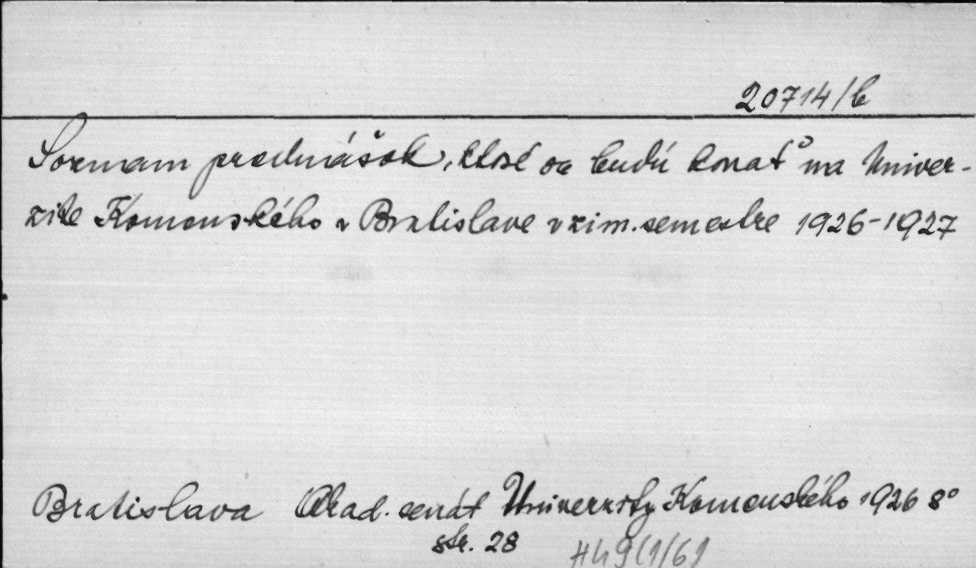 20714/b
Soznam prednášok, ktoré sa budú konať na Univer-
zite Komenského v Bratislave v zim. semestre 1926-1927
Bratislava Akad. senát Univerzity Komenského 1926 8°
str. 28